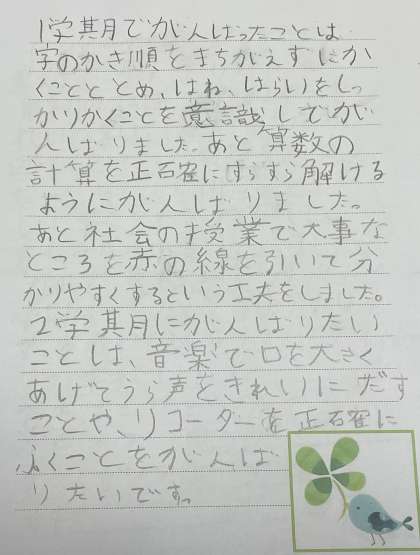 1学期でがんばったことは
字のかき順をまちがえずにか
くこととめ、はね、はらいをしっ
かりかくことを意識してがん
んばりました。あと算数の
計算を正確にすらすら解ける
ようにがんばりました。
あと社会の授業で大事な
ところを赤の線を引いて分
かりやすくするという工夫をしました。
2学期にがんばりたい
ことは、音楽で口を大きく
あげてうら声をきれいにだす
ことや、リコーダーを正確に
ふくことをがんば
りたいです。